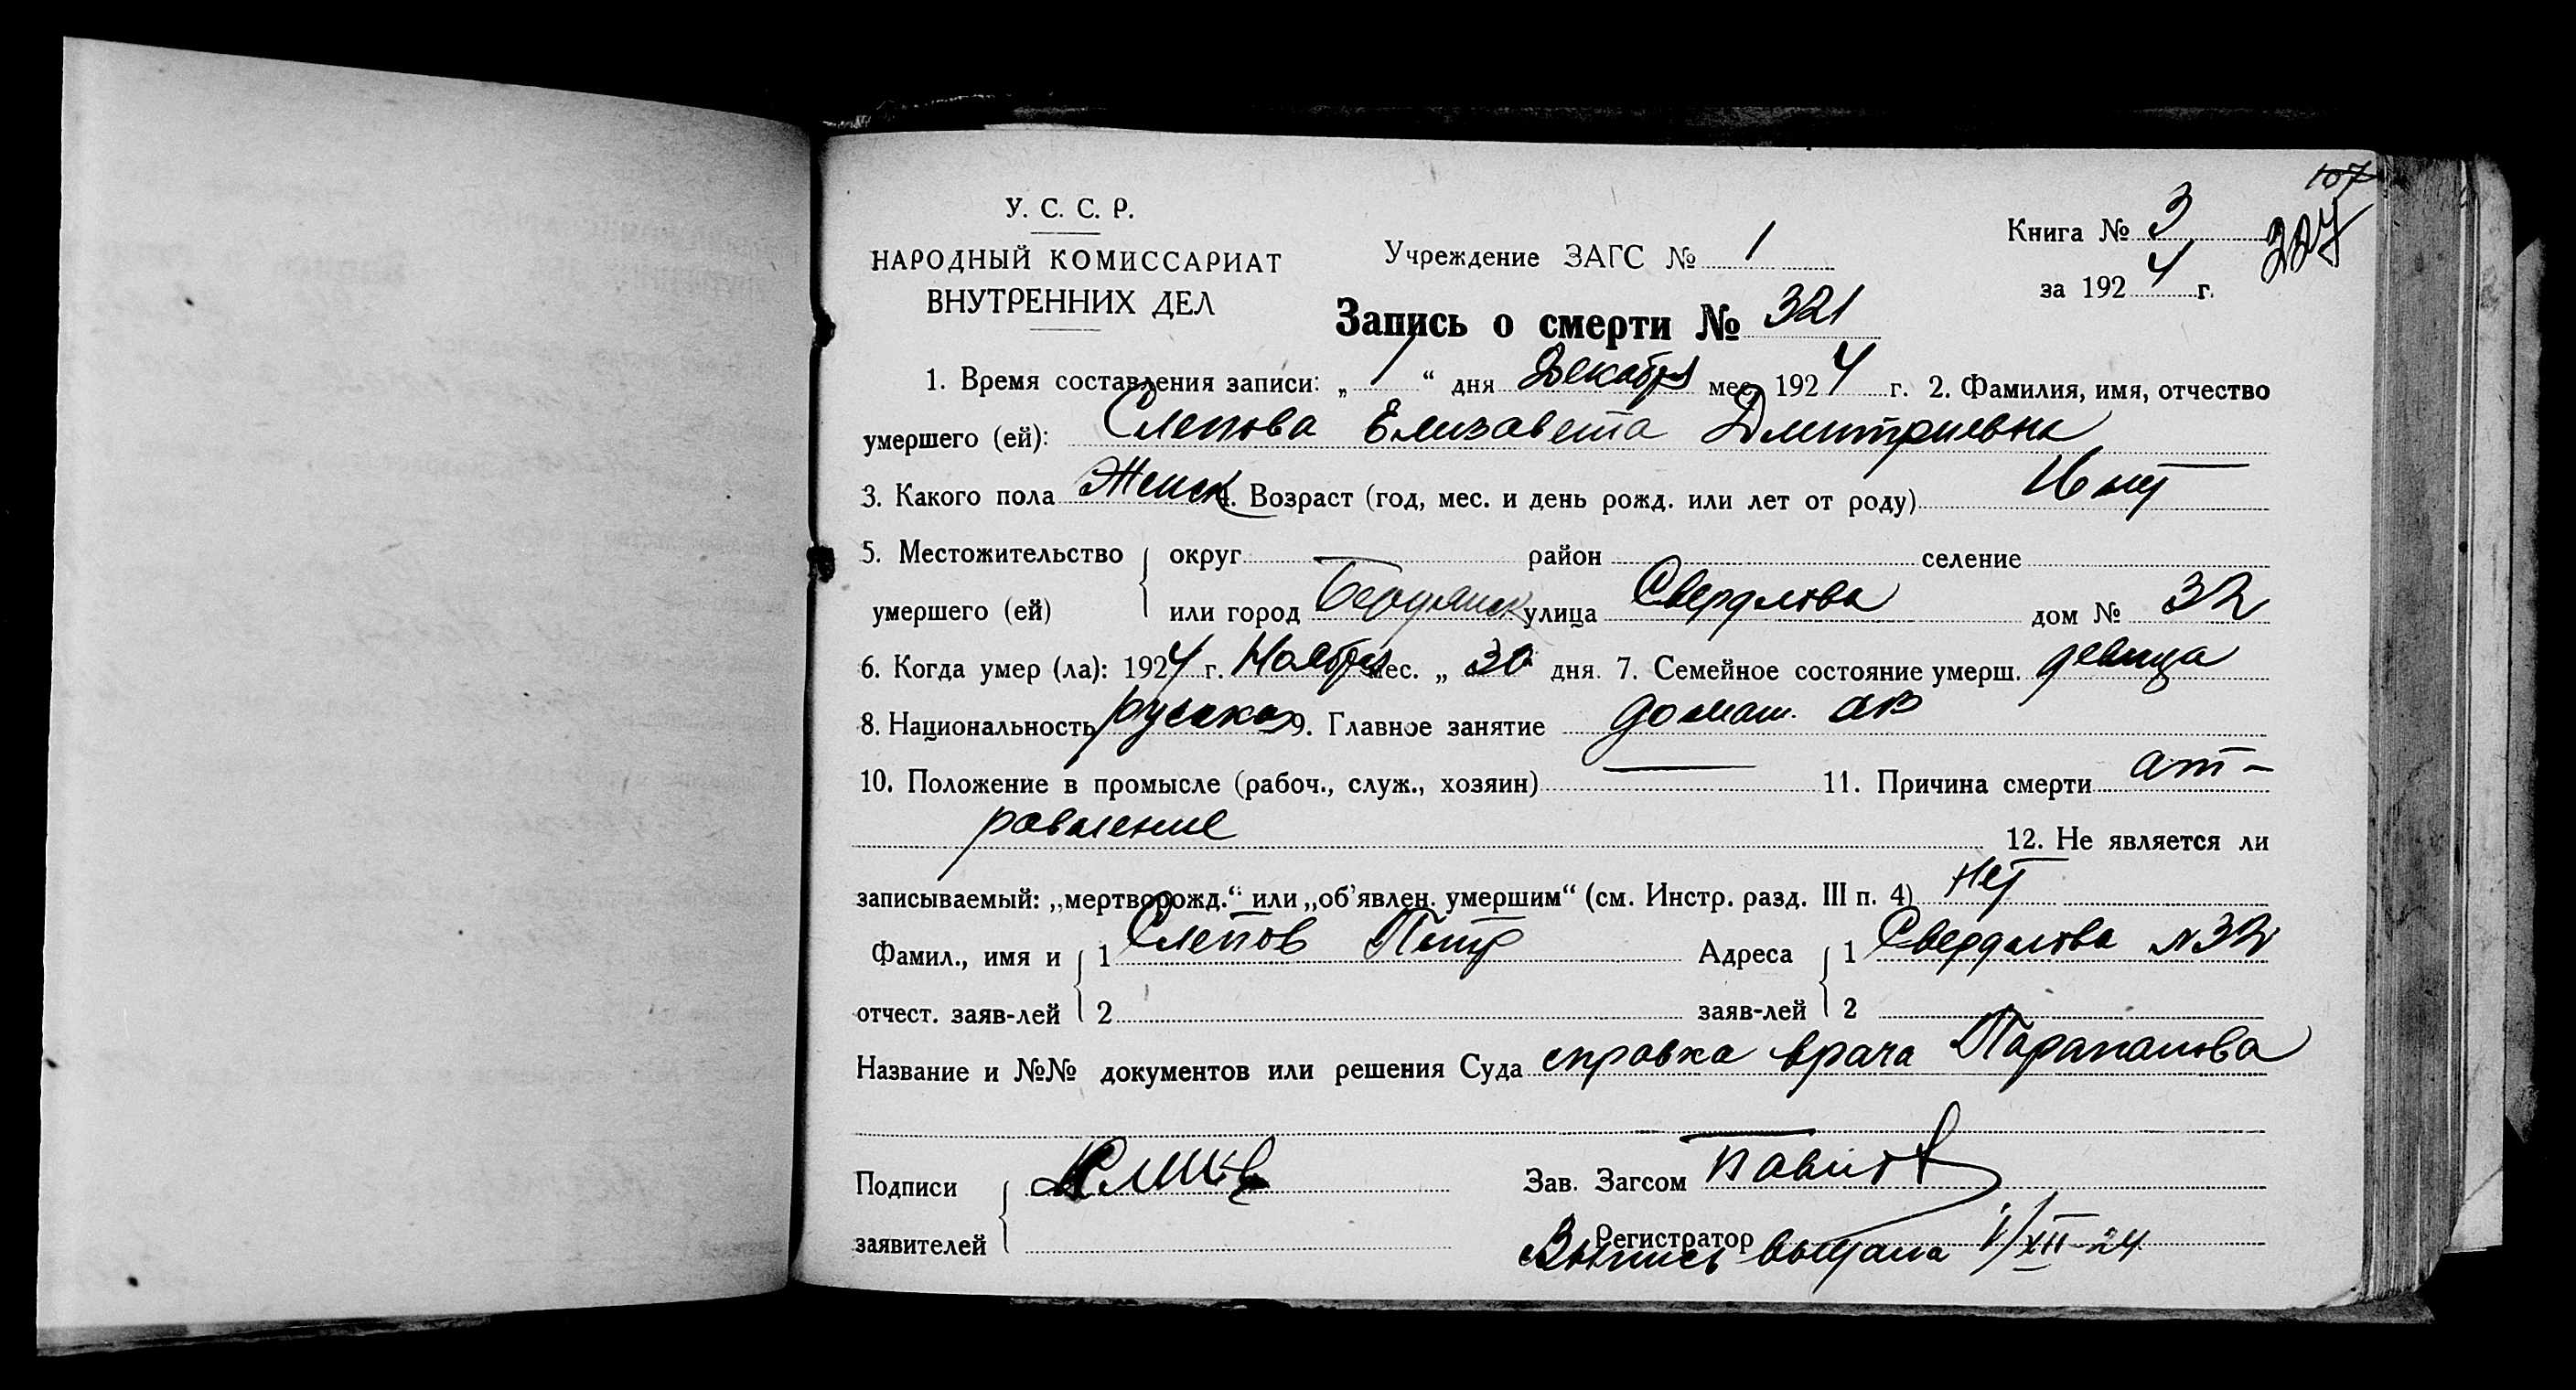 107
327
У. С. С. Р.
НАРОДНЫЙ КОМИССАРИАТ
ВНУТРЕННИХ ДЕЛ
Учреждение ЗАГС № 1
Книга № 3
за 1924 г.
Запись о смерти № 321
1. Время составления записи: „ 1 “ дня Декабря мес. 1924 г. 2. Фамилия, имя, отчество
умершего (ей): Слепова Елизавета Дмитриевна
3. Какого пола Женск 4. Возраст (год, мес. и день рожд. или лет от роду)
5. Местожительство округ район селение
умершего (ей) или город Бердянск улица Свердлова дом № 32
6. Когда умер (ла): 1924 г. Ноября мес. „ 30 дня. 7. Семейное состояние умерш. девица
8. Национальность русская 9. Главное занятие домаш.
10. Положение в промысле (рабоч., служ., хозяин) — 11. Причина смерти от-
равление 12. Не является ли
записываемый: „мертворожд.“ или „об’явлен. умершим“ (см. Инстр. разд. III п. 4) нет
Фамил., имя и 1 Слепов Петр Адреса 1 Свердлова № 32
отчест. заяв-лей 2 заяв-лей 2
Название и №№ документов или решения Суда справка врача
Подписи Зав. Загсом
заявителей Регистратор
Выпись выдана 1/XII-24